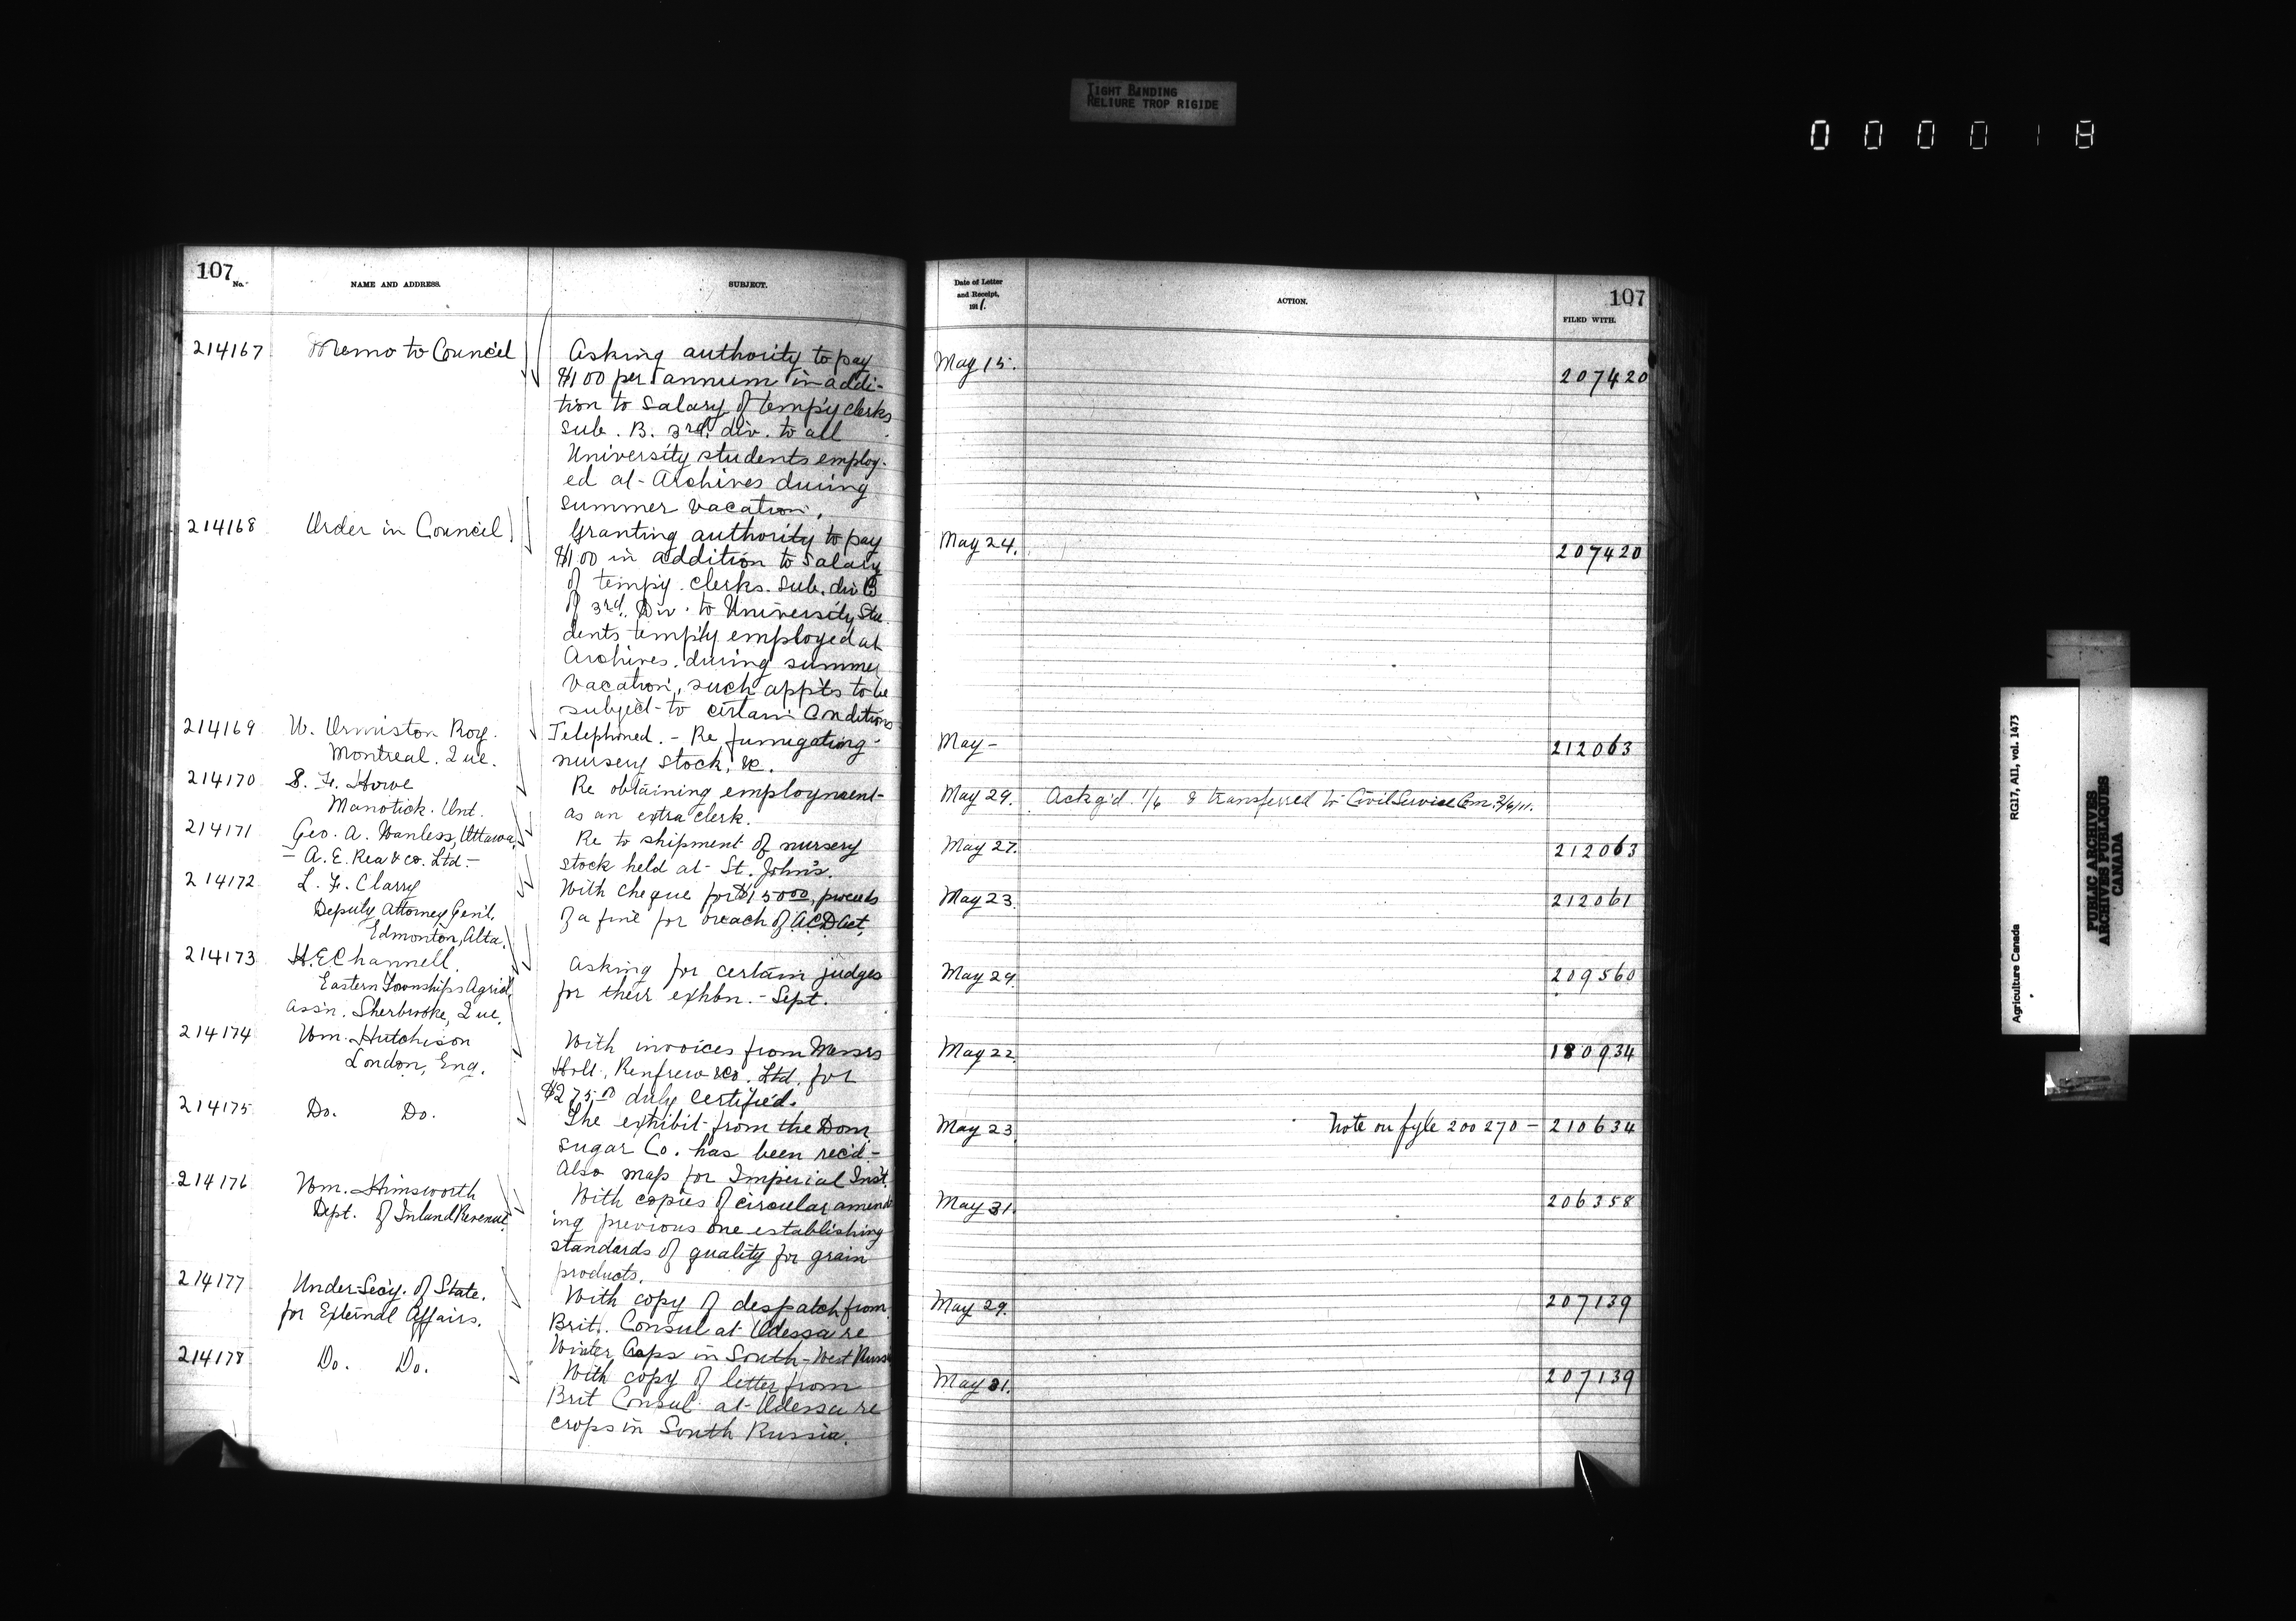 TIGHT BINDING
RELIURE TROP RIGIDE
000018
107
No.
NAME AND ADDRESS.
SUBJECT.
214167
Memo to Council
Asking authority to pay
$100 per annum in addi-
tion to salary of temp'y clerks
sub. B. 3rd. div. to all
University students employ-
ed at Archives during
summer vacation.
214168
Order in Council
Granting authority to pay
$100 in addition to salary
of temp'y. clerks. sub. div B
of 3rd. Div. to University Stu-
dents temp'ly employed at
Archives. during summer
vacation, such app'ts to be
subject to certain conditions
214169
W. Ormiston Roy.
Montreal. Que.
Telephoned. - Re fumigating
nursery stock, &c.
214170
S. F. Howe
Manotick. Ont.
Re obtaining employment
as an extra clerk.
214171
Geo. A. Wanless, Ottawa,
- A. E. Rea & Co. Ltd. -
Re to shipment of nursery
stock held at St. John's.
214172
L. F. Clarry
Deputy Attorney Gen'l,
Edmonton, Alta.
With cheque for $15000, proceeds
of a fine for breach of A.C.D. Act.
214173
H. E. Channell.
Eastern Townships Agric'l.
Ass'n. Sherbrooke, Que.
Asking for certain judges
for their exhbn. - Sept.
214174
Wm. Hutchison
London, Eng.
With invoices from Messrs
Holt, Renfrew & Co. Ltd. for
$275.00 duly certified.
214175
Do. Do.
The exhibit from the Dom
Sugar Co. has been rec'd -
Also map for Imperial Inst.
214176
Wm. Himsworth
Dept. of Inland Revenue
With copies of circular amend-
ing previous one establishing
standards of quality for grain
products.
214177
Under-Sec'y. of State.
for External Affairs.
With copy of despatch from
Brit. Consul at Odessa re
Winter Crops in South-West Russia
214178
Do. Do.
With copy of letter from
Brit Consul at Odessa re
crops in South Russia.
Date of Letter
and Receipt,
1911.
ACTION.
107
FILED WITH.
May 15. 207420
May 24. 207420
May - 212063
May 29. Ack'g'd. 1/6 & transferred to Civil Service Com. 2/6/11.
May 27. 212063
May 23. 212061
May 29. 209560
May 22. 180934
May 23 Note on fyle 200270 - 210634
May 31. 206358
May 29. 207139
May 31. 207139
Agriculture Canada RG17, AII, vol. 1473
PUBLIC ARCHIVES
ARCHIVES PUBLIQUES
CANADA